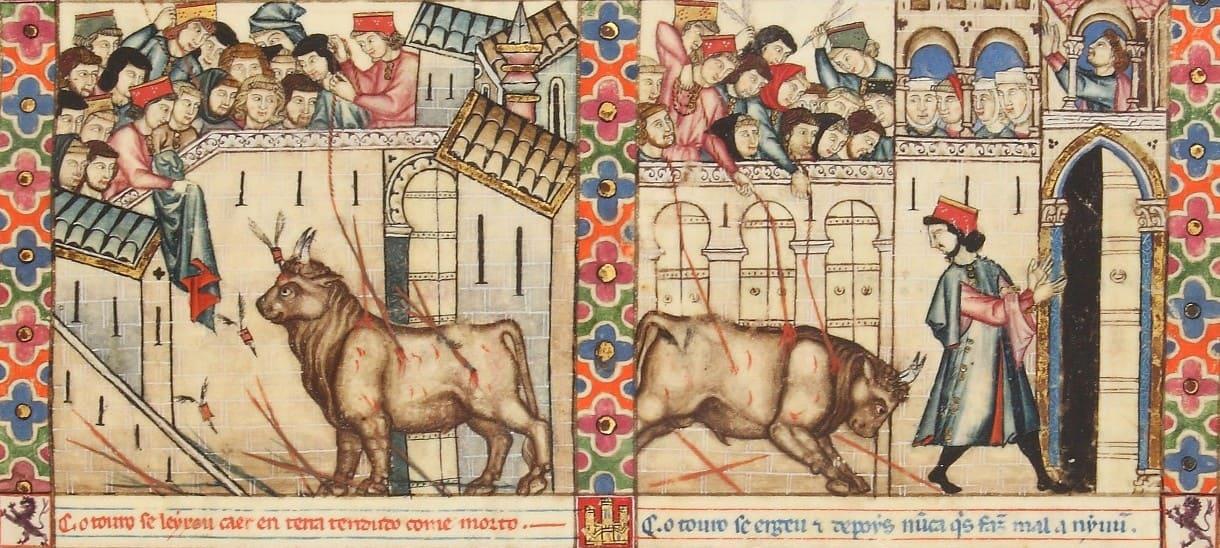 C. o touro se leyxou caer en terra tendudo come morto.
C. o touro se ergeu ⁊ depoys nũca q̇s faz̃ mal a nỹuũ.